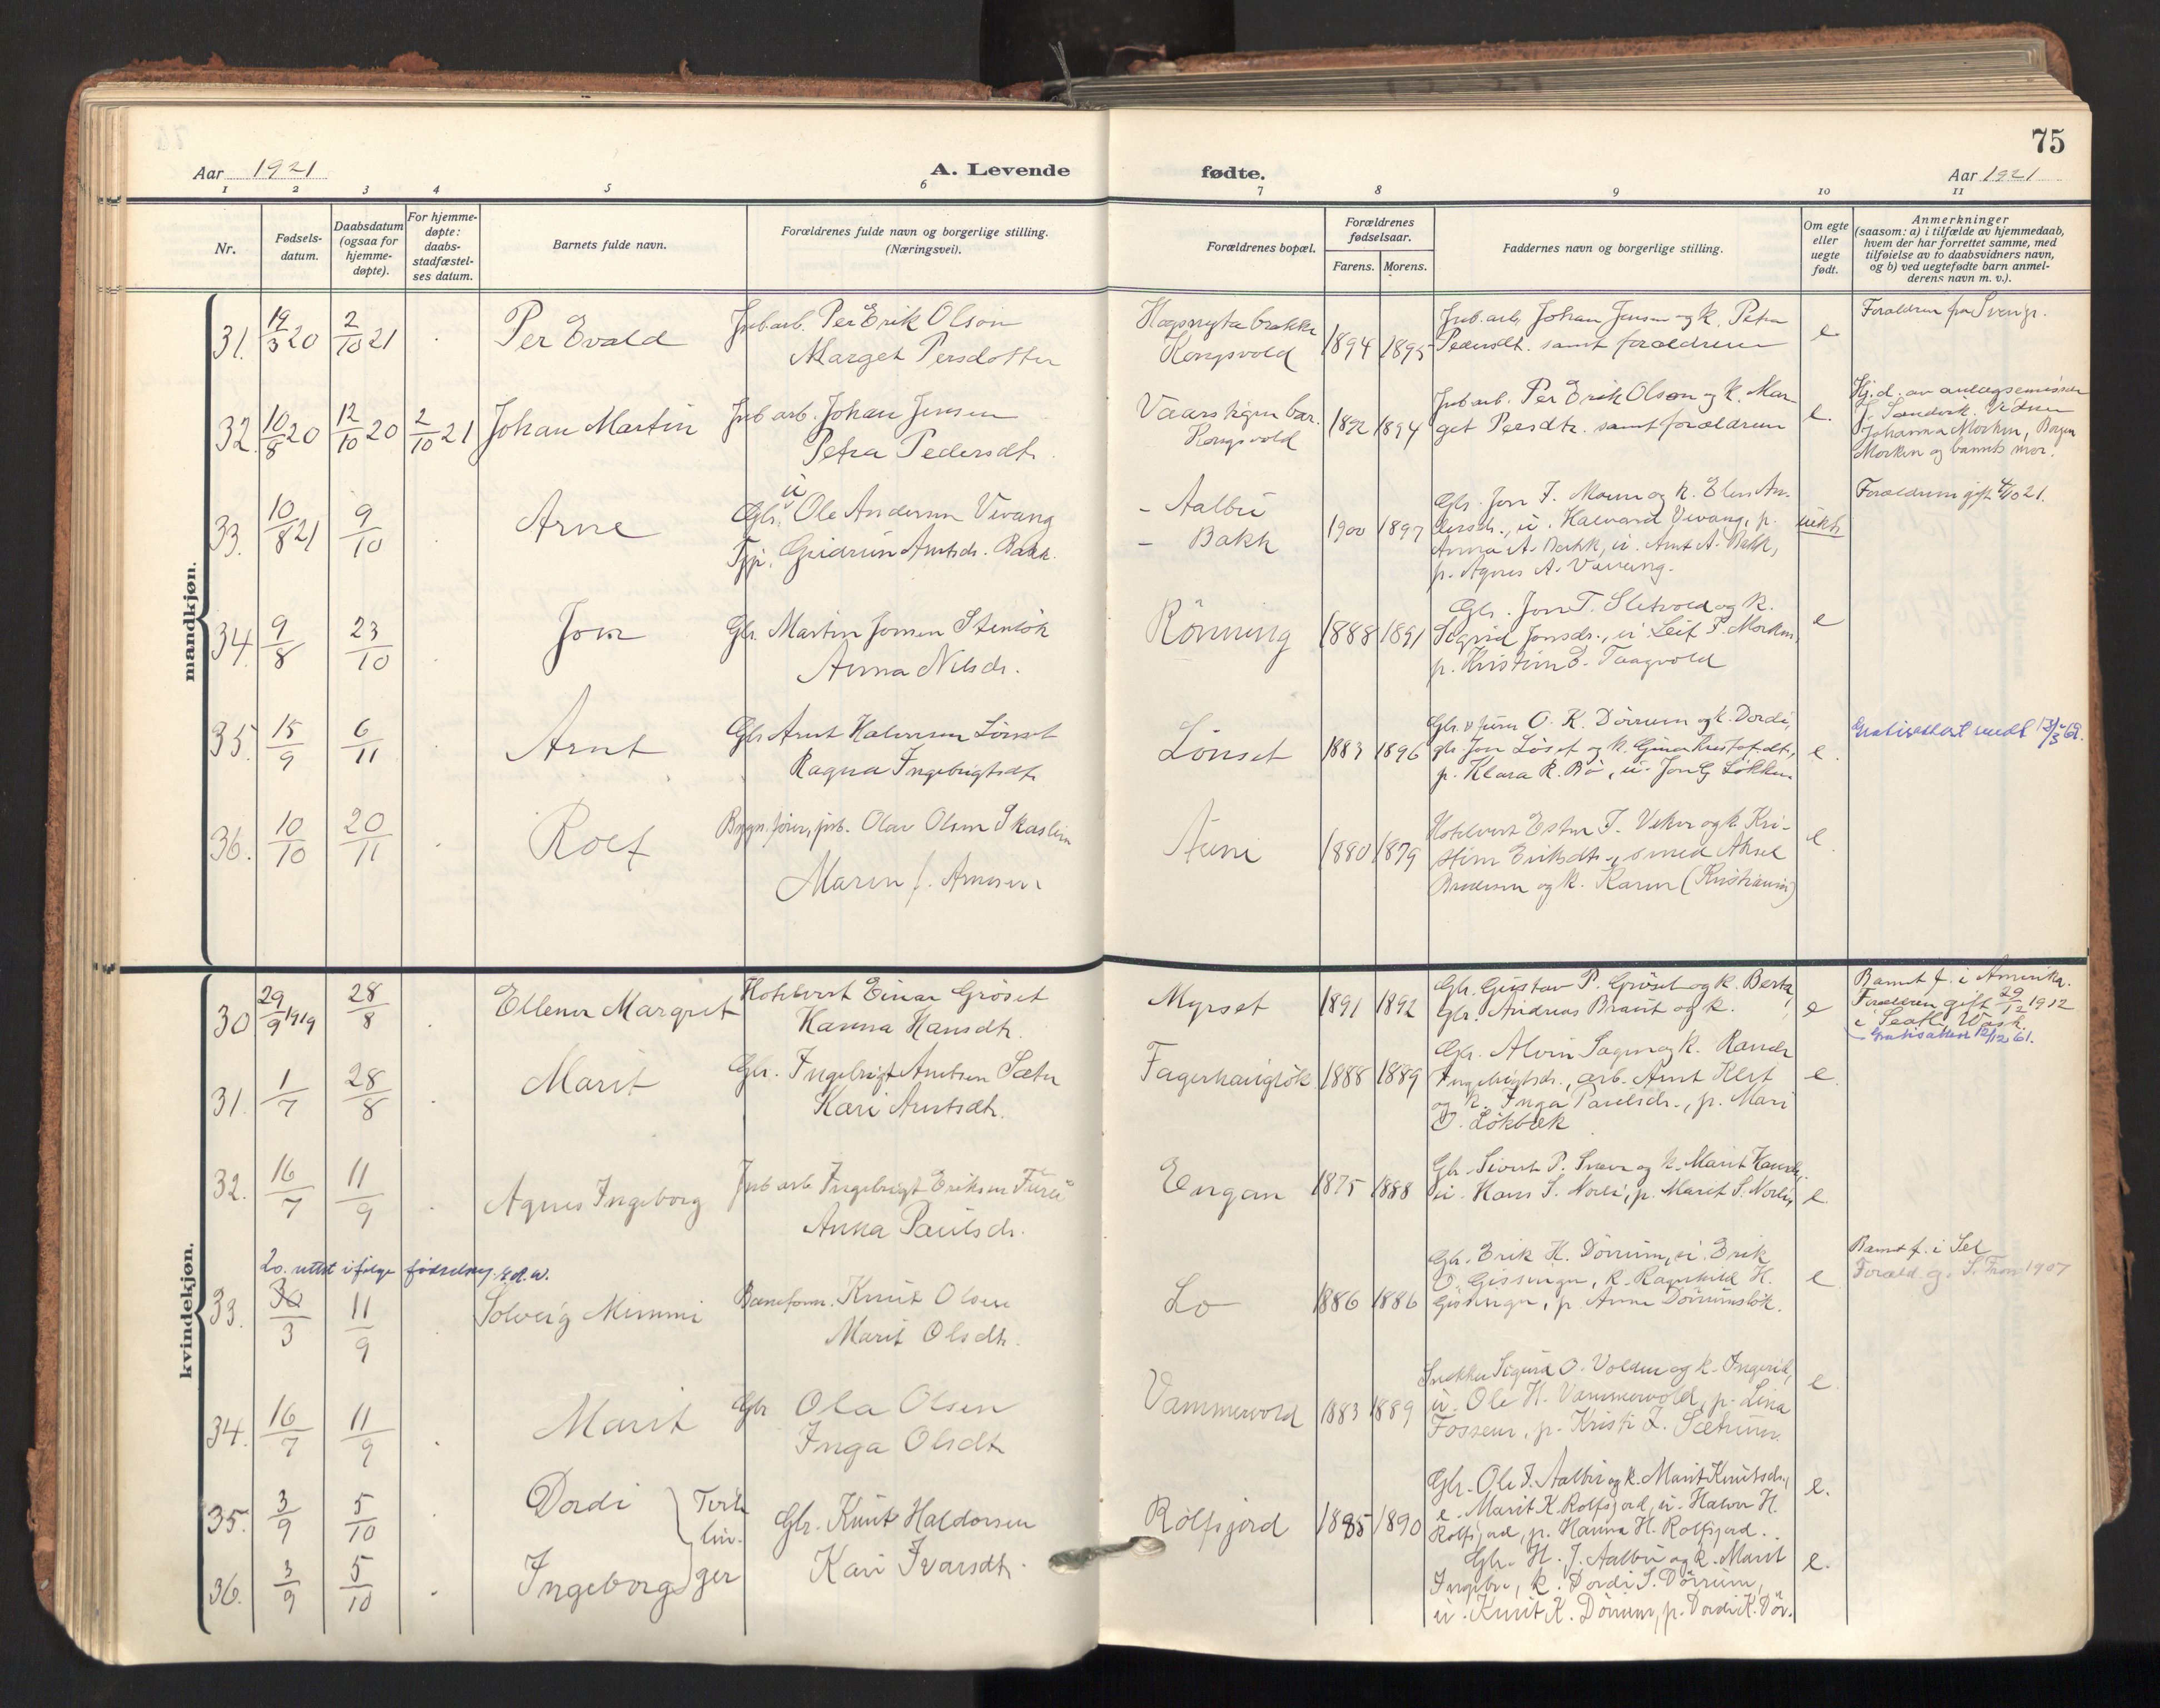 75
Aar 1921
A. Levende fødte.
Aar 1921
1 2 3 4 5 6 7 8 9 10 11
Nr.
Fødsels-
datum.
Daabsdatum
(ogsaa for
hjemme-
døpte).
For hjemme-
døpte:
daabs-
stadfæstel-
ses datum.
Barnets fulde navn.
Forældrenes fulde navn og borgerlige stilling.
(Næringsvei).
Forældrenes bopæl.
Forældrenes
fødselsaar.
Farens. Morens.
Faddernes navn og borgerlige stilling.
Om egte
eller
uegte
født.
Anmerkninger
(saasom: a) i tilfælde av hjemmedaab,
hvem der har forrettet samme, med
tilføielse av to daabsvidners navn,
og b) ved uegtefødte barn anmel-
derens navn m. v.).
mandkjøn.
31. 19/3 20 2/10 21 Per Evald
Jnb.arb. Per Erik Olson
Marget Persdotter
Kongsvold
1894 1895
Jnb.arb. Johan Jensen og k. Petra
Pedersdt. samt forældrene
e
Forældrene fra Sverige.
32. 10/8 20 12/10 20 2/10 21 Johan Martin
Jnb arb. Johan Jensen
Petra Pedersdt.
Vaarstigen bar.
Kongsvold
1892 1894
Jnb arb. Per Erik Olson og k. Mar
get Persdtr. samt forældrene
e.
Hj.d. av
J. Sandvik. Vidner
Johanna Morken,
Morken og barnets mor.
33. 10/8 21 9/10 Arne
u
Gbr. Ole Andersen Vivang
Tjp. Gudrun Arntsdr. Bakk.
- Aalbu
- Bakk
1900 1897
Gbr. Jon J. Moen og k. Elen An-
dersdr., u. Halvard Vivang, p.
Anna A. Bakk, u. Arnt A. Bakk,
p. Agnes A. Vivang.
uekte
Forældrene gift 4/10 21.
34. 9/8 23/10 Jon
Gbr. Martin Jonsen Stenløk
Anna Nilsdr.
Rönning
1888 1891
Gbr. Jon T. Sletvold og k.
Sigrid Jonsdr., u. Leif P. Morken,
p. Kristine E. Taagvold
e
35. 15/9 6/11 Arnt
Gbr Arnt Halvorsen Lönset
Ragna Ingebrigtsdt.
Lönset
1883 1896
O. K. Dörrum og k. Dordi,
gbr. Jon Löset og k. Gina Kristofdt.,
p. Klara R. Bö, u. Jon G Løkken
e.
Gratisattest sendt
36. 10/10 20/11 Rolf
Olav Olsen Skaslien
Maren f. Arnesen
Aune
1880 1879
Hotelvert Ester J. Veker og k. Kri-
stine Eriksdt., smed Aksel
Bredesen og k. Karen (Kristiania)
e.
kvindekjøn.
30. 29/9 1919 28/8 Ellenor Margret
Hotelvert Einar Gröset
Hanna Hansdt.
Myrset
1891 1892
Gbr. Gustav P. Gröset og k. Berta,
Gbr. Andreas Braut og k.
e
Barnet f. i Amerika.
Forældren gift 29/12 1912
i Seatle Wash.
Gratisattest 12/12 61.
31. 1/7 28/8 Marit
Gbr. Ingebrigt Arntsen Sæter
Kari Arntsdt.
Fagerhaugløk
1888 1889
Gbr. Alvin Sagen og k. Randi
Ingebrigtsdr., arb. Arnt Klet
og k. Inga Paulsdr., p. Mari
O. Løkbæk
e.
32. 16/7 11/9 Agnes Ingeborg
Jnb arb Ingebrigt Eriksen Furu
Anna Paulsdr.
Engan
1875 1888
Gbr. Sivert P. Svean og k. Marit Hansdt.,
u. Hans S. Norli, p. Marit S. Norli,
e.
20. rettet ifølge fødselsreg.
33. 30/3 11/9 Solveig Mimmi
Baneform. Knut Olsen
Marit Olsdt.
Lo
1886 1886
Gbr. Erik H. Dörrum, u. Erik
O. Gissinger, k. Ragnhild H.
Gissinger, p. Anne Dörrumsløk.
e
Barnet f. i Sel
Foræld. g. S. Fron 1907
34. 16/7 11/9 Marit
Gbr Ola Olsen
Inga Olsdt
Vammervold
1883 1889
Snekker Sigurd O. Volden og k. Ingerid,
u. Ole H. Vammervold, p. Lina
Fossem, p. Kristi L. Sætrum.
e.
35. 3/9 5/10 Dordi
36. 3/9 5/10 Ingeborg
Tvil
lin-
ger
Gbr. Knut Haldorsen
Kari Ivarsdt.
Rolfsjord
1885 1890
Gbr. Ole J. Aalbu og k. Marit Knutsdr.,
e. Marit K. Rolfsjord, u. Halvor H.
Rolfsjord, p. Hanna H. Rolfsjord.
e.
Gbr. H. J. Aalbu og k. Marit
Ingebr., k. Dordi S. Dörrum,
u. Knut K. Dörrum, p. Dordi K. Dör.
e.